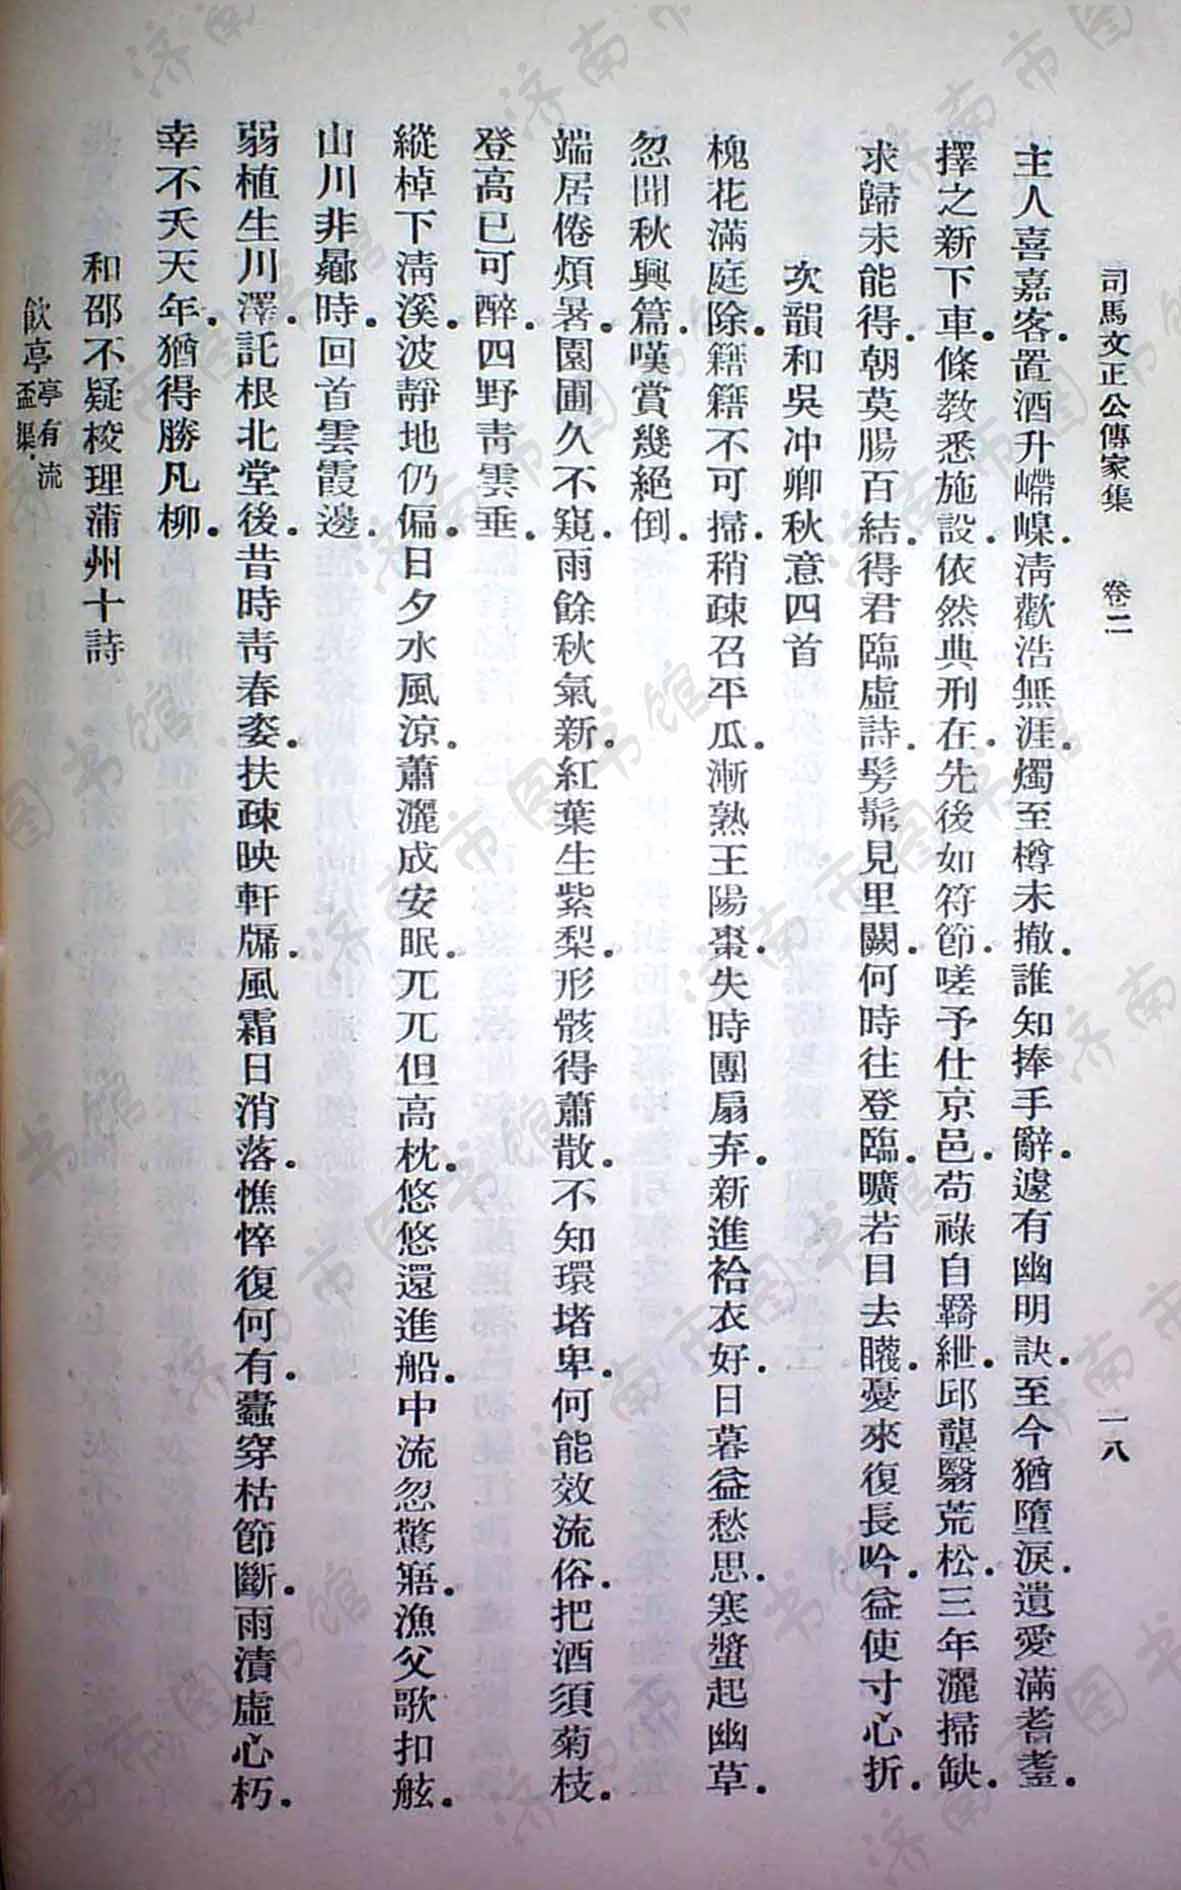 司馬文正公傳家集　卷二　一八
主人喜嘉客置酒升㟞嵲清歡浩無涯燭至樽未撤誰知捧手辭遽有幽明訣至今猶墮淚遺愛滿耆耋
擇之新下車條教悉施設依然典刑在先後如符節嗟予仕京邑苟祿自羇紲邱壟翳荒松三年灑掃缺
求歸未能得朝莫腸百結得君臨虛詩髣髴見里闕何時往登臨曠若目去䁾憂來復長吟益使寸心折
次韻和吳冲卿秋意四首
槐花滿庭除籍籍不可掃稍疎召平瓜漸熟王陽棗失時團扇弃新進袷衣好日暮益愁思寒螿起幽草
忽聞秋興篇嘆賞幾絕倒
端居倦煩暑園圃久不窺雨餘秋氣新紅葉生紫梨形骸得蕭散不知環堵卑何能效流俗把酒須菊枝
登高已可醉四野靑雲垂
縱棹下淸溪波靜地仍偏日夕水風涼蕭灑成安眠兀兀但高枕悠悠還進船中流忽驚寤漁父歌扣舷
山川非曏時回首雲霞邊
弱植生川澤託根北堂後昔時靑春姿扶疎映軒牖風霜日消落憔悴復何有蠹穿枯節斷雨漬虛心朽
幸不夭天年猶得勝凡柳
和邵不疑校理蒲州十詩
飮亭亭有流盃渠